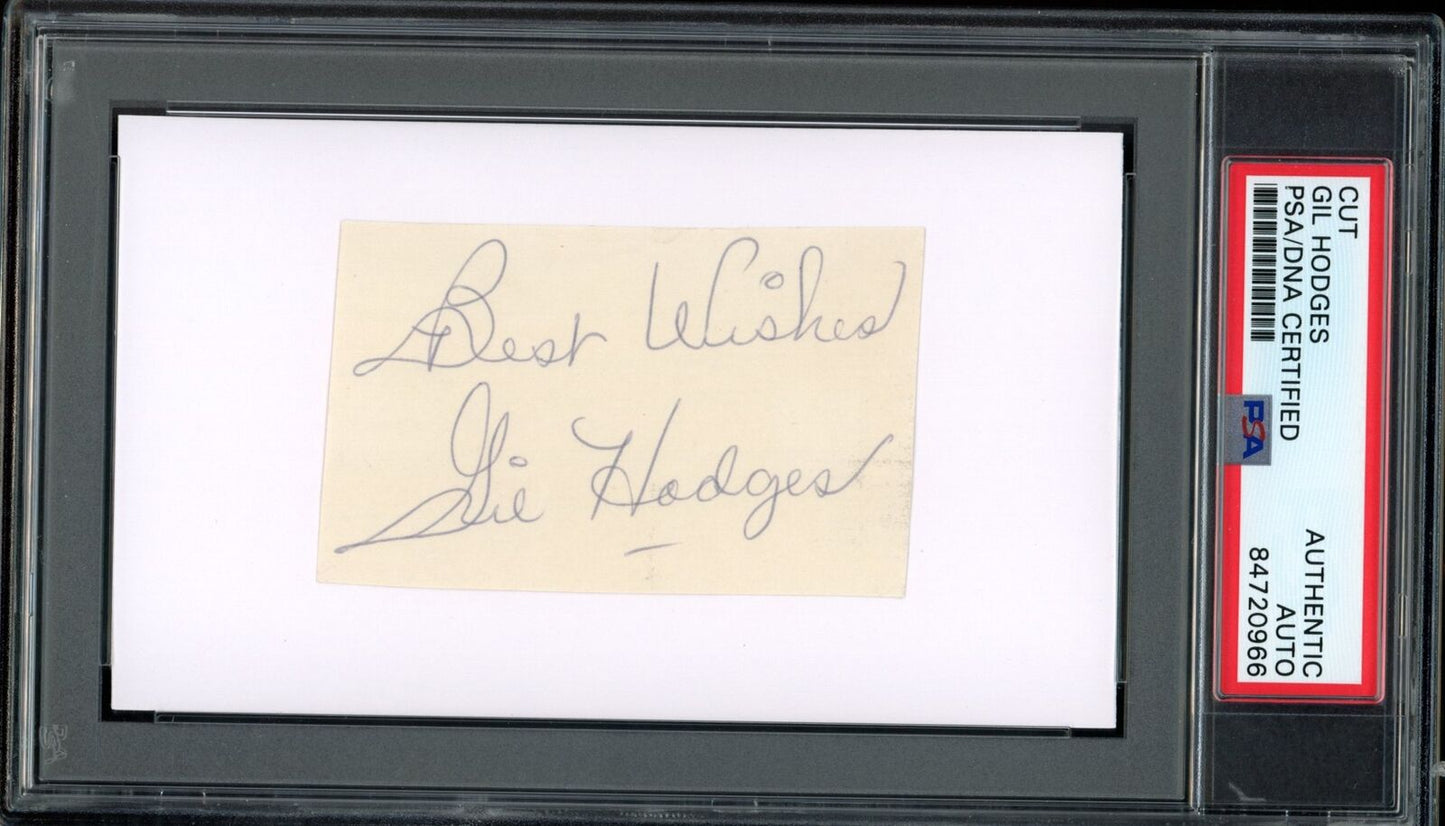 Best Wishes
Gil Hodges
CUT
GIL HODGES
PSA/DNA CERTIFIED
AUTHENTIC
AUTO
84720966
PSA